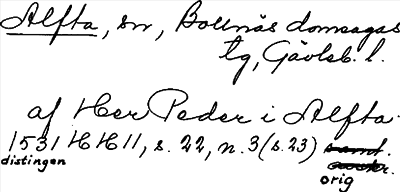 Alfta, sn, Bollnäs domsagas
tg, Gävleb. l.
af Her Peder i Alfta.
1531 HH 11, s. 22, n. 3 (s. 23)
distingen
orig